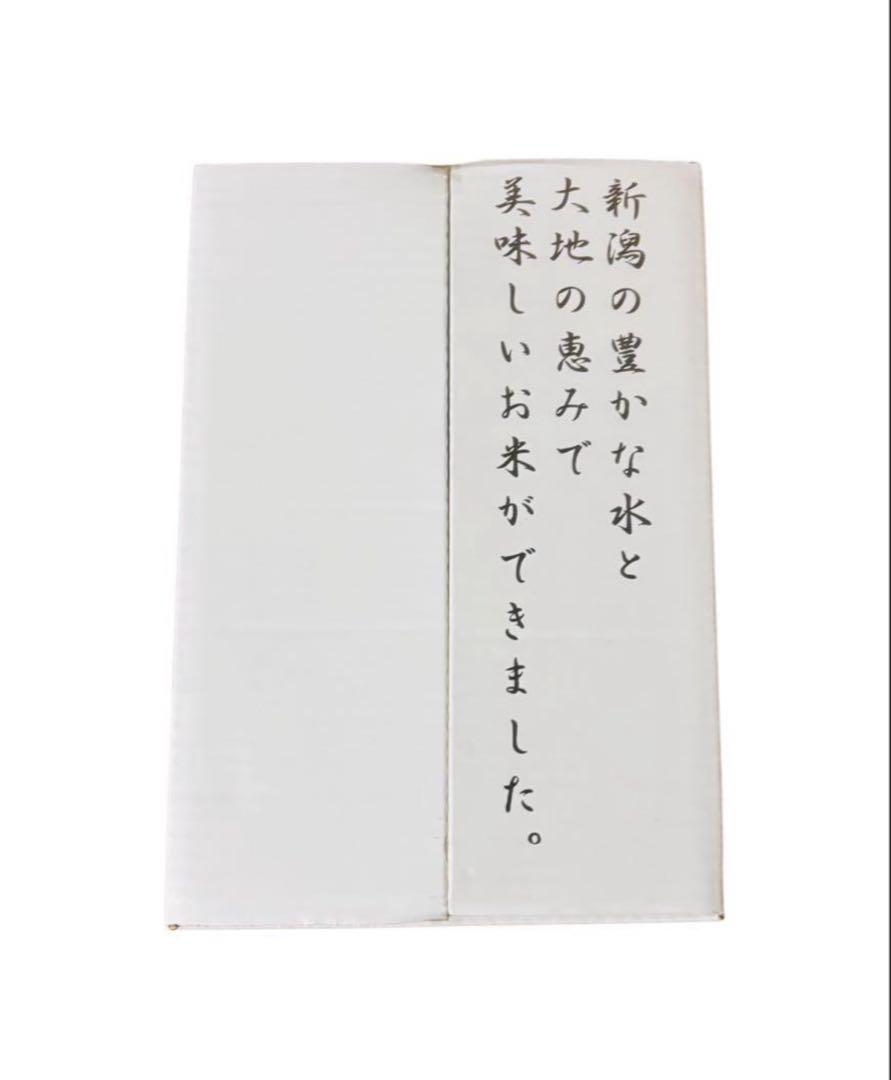 新潟の豊かな水と
大地の恵みで
美味しいお米ができました。